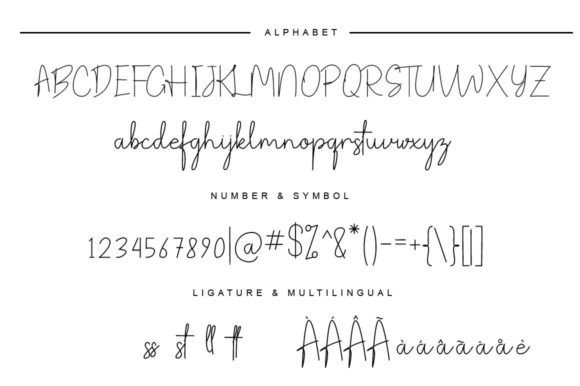 ALPHABET
ABCDEFGHIJKLMNOPQRSTUVWXYZ
abcdefghijklmnopqrstuvwxyz
NUMBER & SYMBOL
1234567890|@#$%^&*()-=+{\}[|]
LIGATURE & MULTILINGUAL
ss st ll tt ÀÁÂÃ àáâãäåè